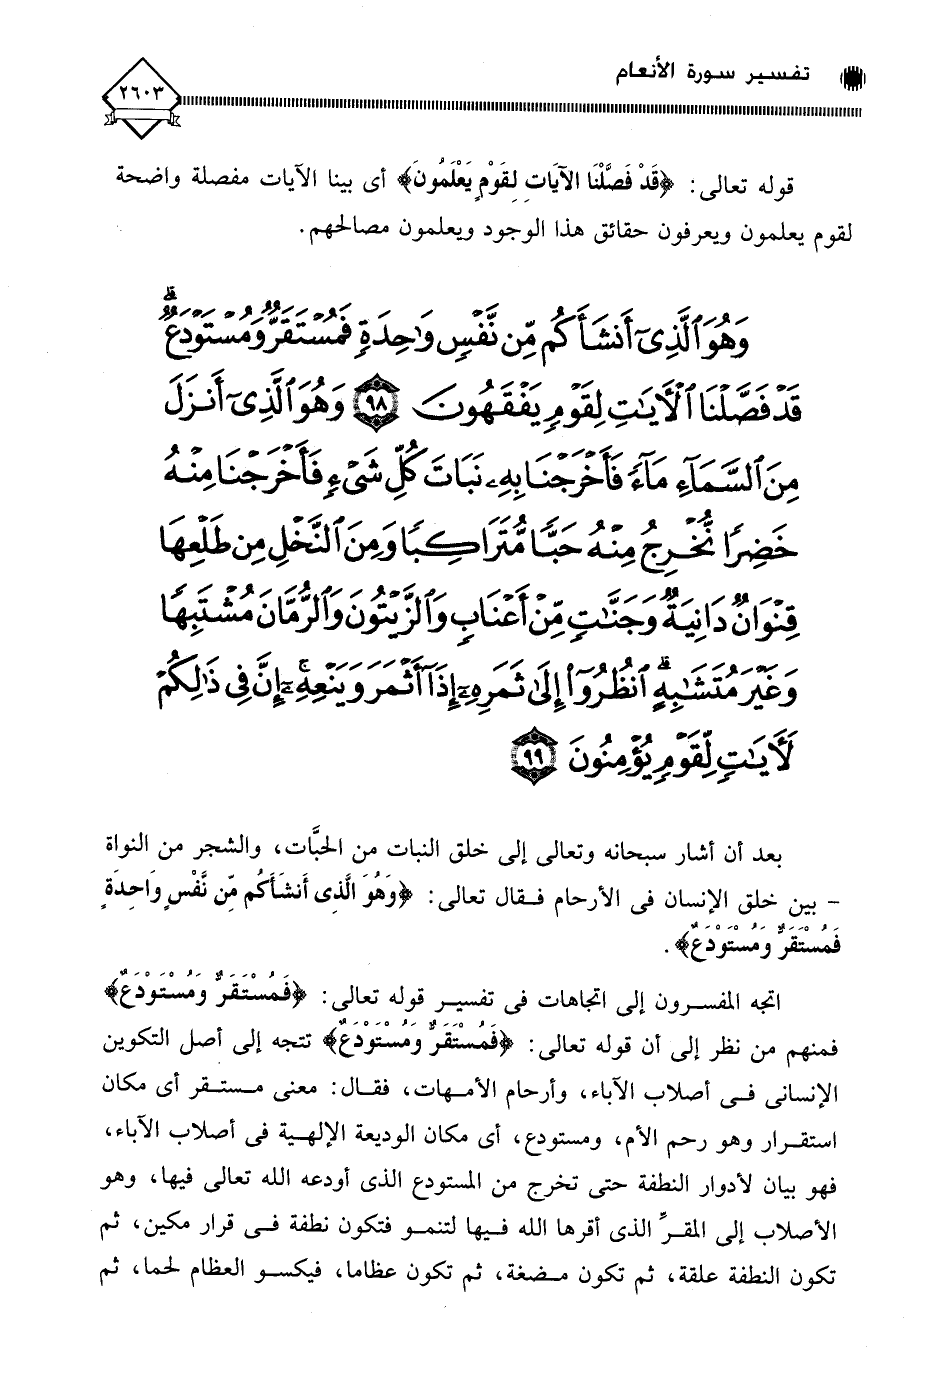 تفسير سورة الأنعام
٢٦٠٣
قوله تعالى: ﴿قَدْ فَصَّلْنَا الآيَاتِ لِقَوْمٍ يَعْلَمُونَ﴾ أى بينا الآيات مفصلة واضحة
لقوم يعلمون ويعرفون حقائق هذا الوجود ويعلمون مصالحهم.
وَهُوَ ٱلَّذِىٓ أَنشَأَكُم مِّن نَّفْسٍ وَٰحِدَةٍ فَمُسْتَقَرٌّ وَمُسْتَوْدَعٌ ۗ
قَدْ فَصَّلْنَا ٱلْأَيَٰتِ لِقَوْمٍ يَفْقَهُونَ ٩٨ وَهُوَ ٱلَّذِىٓ أَنزَلَ
مِنَ ٱلسَّمَآءِ مَآءً فَأَخْرَجْنَا بِهِۦ نَبَاتَ كُلِّ شَىْءٍ فَأَخْرَجْنَا مِنْهُ
خَضِرًا نُّخْرِجُ مِنْهُ حَبًّا مُّتَرَاكِبًا وَمِنَ ٱلنَّخْلِ مِن طَلْعِهَا
قِنْوَانٌ دَانِيَةٌ وَجَنَّٰتٍ مِّنْ أَعْنَابٍ وَٱلزَّيْتُونَ وَٱلرُّمَّانَ مُشْتَبِهًا
وَغَيْرَ مُتَشَٰبِهٍ ۗ ٱنظُرُوٓا۟ إِلَىٰ ثَمَرِهِۦٓ إِذَآ أَثْمَرَ وَيَنْعِهِۦٓ ۚ إِنَّ فِى ذَٰلِكُمْ
لَأَيَٰتٍ لِّقَوْمٍ يُؤْمِنُونَ ٩٩
بعد أن أشار سبحانه وتعالى إلى خلق النبات من الحبَّات، والشجر من النواة
- بين خلق الإنسان فى الأرحام فقال تعالى: ﴿وَهُوَ الَّذِى أَنشَأَكُم مِّن نَّفْسٍ وَاحِدَةٍ
فَمُسْتَقَرٌّ وَمُسْتَوْدَعٌ﴾.
اتجه المفسرون إلى اتجاهات فى تفسير قوله تعالى: ﴿فَمُسْتَقَرٌّ وَمُسْتَوْدَعٌ﴾
فمنهم من نظر إلى أن قوله تعالى: ﴿فَمُسْتَقَرٌّ وَمُسْتَوْدَعٌ﴾ تتجه إلى أصل التكوين
الإنسانى فى أصلاب الآباء، وأرحام الأمهات، فقال: معنى مستقر أى مكان
استقرار وهو رحم الأم، ومستودع، أى مكان الوديعة الإلهية فى أصلاب الآباء،
فهو بيان لأدوار النطفة حتى تخرج من المستودع الذى أودعه الله تعالى فيها، وهو
الأصلاب إلى المقرِّ الذى أقرها الله فيها لتنمو فتكون نطفة فى قرار مكين، ثم
تكون النطفة علقة، ثم تكون مضغة، ثم تكون عظاما، فيكسو العظام لحما، ثم